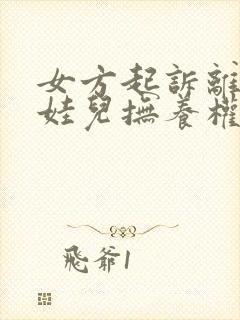 女方起訴離
娃兒撫養權
飛爺1